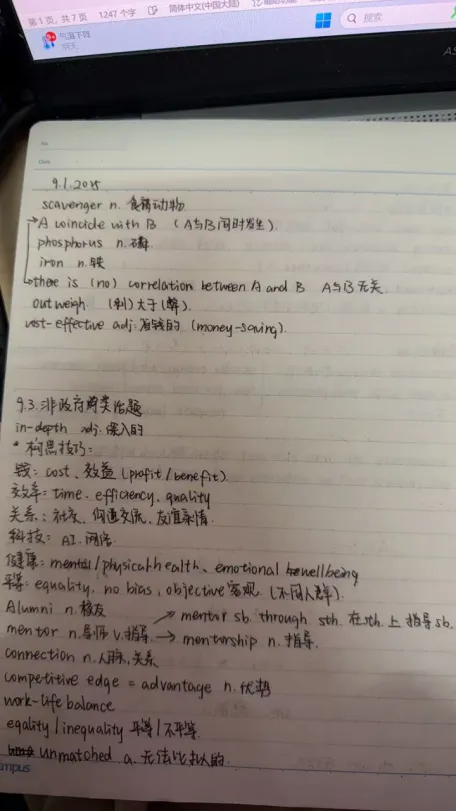 第1页，共7页 1247个字 简体中文(中国大陆)
气温下降
明天
搜索
AS
No.
Date.
9.1.2025
scavenger n. 食腐动物
A coincide with B (A与B同时发生).
phosphorus n. 磷
iron n. 铁
there is (no) correlation between A and B A与B无关
outweigh. (利)大于(弊).
cost-effective adj. 省钱的 (money-saving).
9.3. 非政府购类话题
in-depth adj. 深入的
* 构思技巧:
钱: cost、效益 (profit/benefit).
效率: time、efficiency、quality
关系: 社交、沟通交流、友谊亲情.
科技: AI. 网络
健康: mental/physical health、emotional wellbeing
平等: equality, no bias, objective 客观 (不同人群).
Alumni n. 校友
mentor sb. through sth. 在sth. 上指导sb.
mentor n. 导师 v. 指导 → mentorship n. 指导.
connection n. 人脉, 关系
competitive edge = advantage n. 优势
work-life balance
eqality/inequality 平等/不平等.
unmatched a. 无法比拟的.
mpus